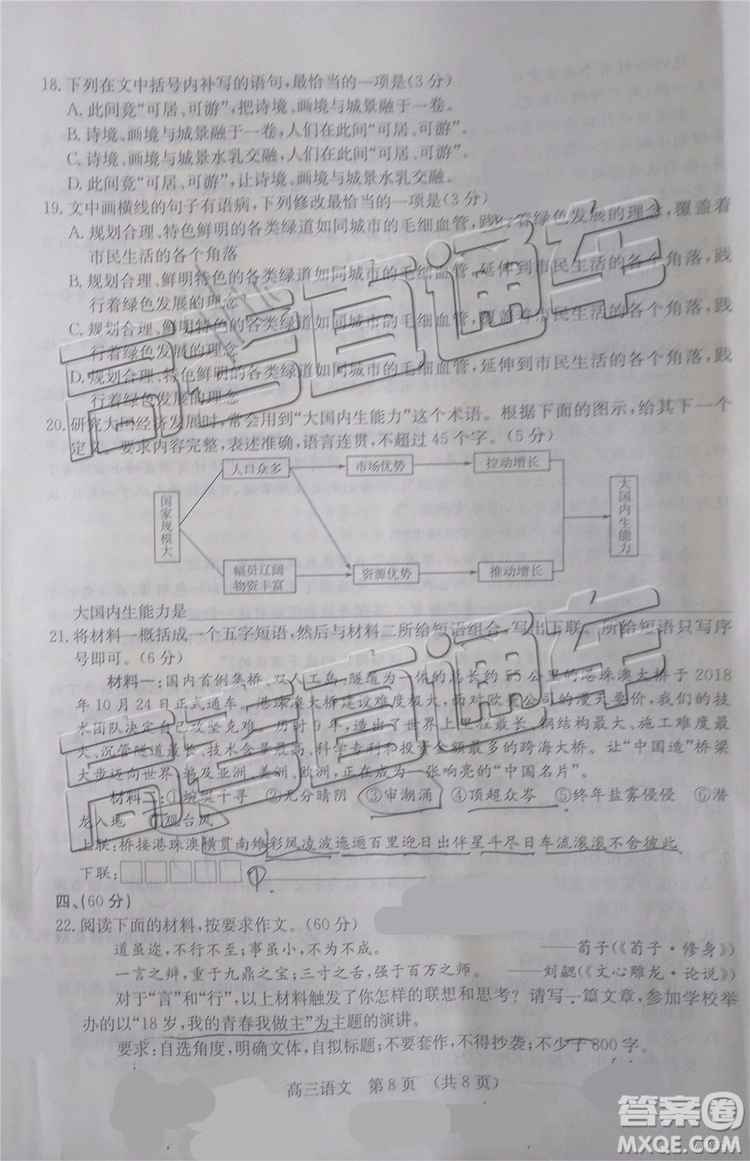 18. 下列在文中括号内补写的语句,最恰当的一项是(3分)
A. 此间竟“可居、可游”,把诗境、画境与城景融于一卷。
B. 诗境、画境与城景融于一卷,人们在此间“可居、可游”。
C. 诗境、画境与城景水乳交融,人们在此间“可居、可游”。
D. 此间竟“可居、可游”,让诗境、画境与城景水乳交融。
19. 文中画横线的句子有语病,下列修改最恰当的一项是(3分)
A. 规划合理、特色鲜明的各类绿道如同城市的毛细血管,践行着绿色发展的理念,覆盖着
市民生活的各个角落
B. 规划合理、鲜明特色的各类绿道如同城市的毛细血管,延伸到市民生活的各个角落,践
行着绿色发展的理念
C. 规划合理、鲜明特色的各类绿道如同城市的毛细血管,覆盖着市民生活的各个角落,践
行着绿色发展的理念
D. 规划合理、特色鲜明的各类绿道如同城市的毛细血管,延伸到市民生活的各个角落,践
行着绿色发展的理念
20. 研究大国经济发展时,常会用到“大国内生能力”这个术语。根据下面的图示,给其下一个
定义。要求内容完整,表述准确,语言连贯,不超过45个字。(5分)
国家规模大
人口众多
市场优势
拉动增长
幅员辽阔
物资丰富
资源优势
推动增长
大国内生能力
大国内生能力是
21. 将材料一概括成一个五字短语,然后与材料二所给短语组合,写出下联。所给短语只写序
号即可。(6分)
材料一:国内首例集桥、双人工岛、隧道为一体的总长约55公里的港珠澳大桥于2018
年10月24日正式通车。港珠澳大桥建设难度极大,面对欧美公司的漫天要价,我们的技
术团队决定自己攻坚克难。历时9年,造出了世界上里程最长、钢结构最大、施工难度最
大、沉管隧道最长、技术含量最高、科学专利和投资金额最多的跨海大桥。让“中国造”桥梁
大步迈向世界,编及亚洲、美洲、欧洲,正在成为一张响亮的“中国名片”。
材料二:①蜿蜒千寻 ②九分晴阴 ③审潮涌 ④顶超众岑 ⑤终年盐雾侵侵 ⑥潜
龙入港 ⑦观台风
上联:桥接港珠澳横贯南疆彩凤凌波迤逦百里迎日出伴星斗尽日车流滚滚不舍此去
下联:□□□□□①
四、(60分)
22. 阅读下面的材料,按要求作文。(60分)
道虽迩,不行不至;事虽小,不为不成。——荀子(《荀子·修身》)
一言之辩,重于九鼎之宝;三寸之舌,强于百万之师。——刘勰(《文心雕龙·论说》)
对于“言”和“行”,以上材料触发了你怎样的联想和思考?请写一篇文章,参加学校举
办的以“18岁,我的青春我做主”为主题的演讲。
要求:自选角度,明确文体,自拟标题;不要套作,不得抄袭;不少于800字。
高三语文 第8页 (共8页)
高考直通车
高考直通车
答案圈
MXQE.COM